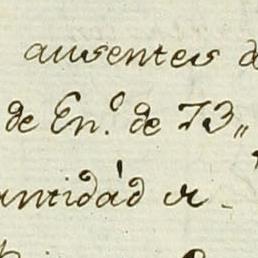 ausentes de
de En.º de 73,,
antidád